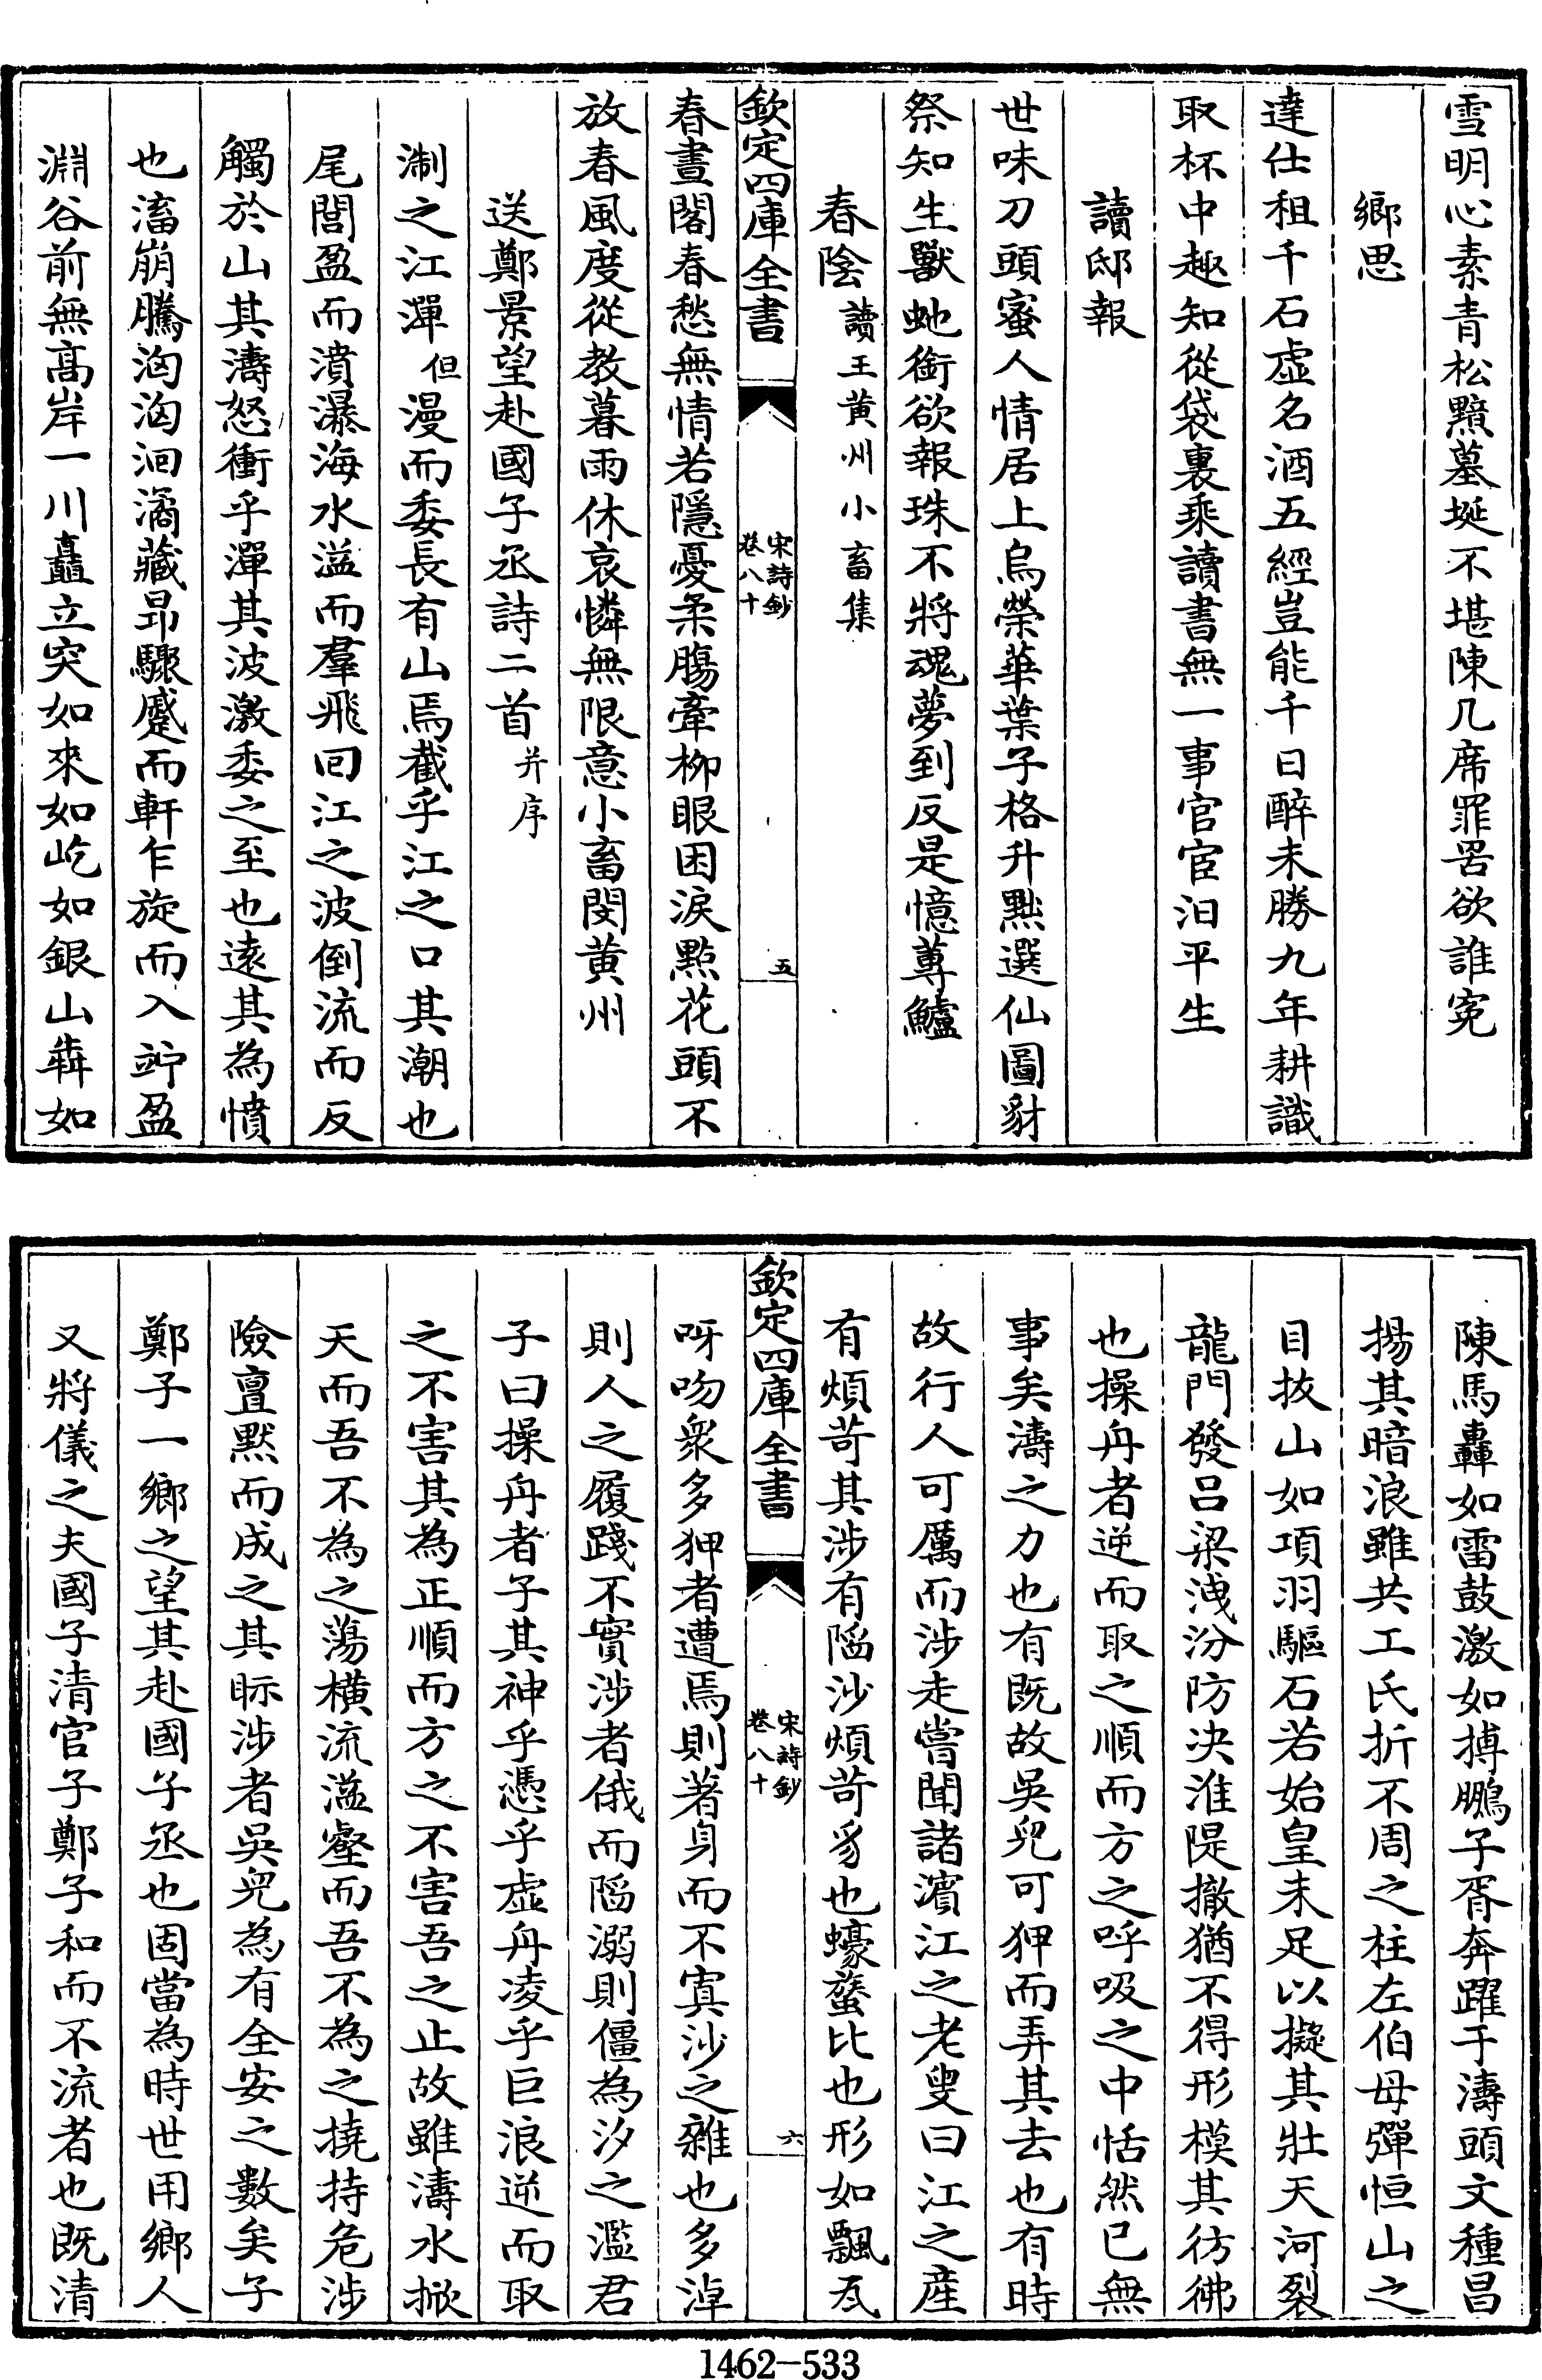 雪明心素青松黯墓埏不堪陳几席罪罟欲誰寃
鄉思
達仕租千石虚名酒五經豈能千日醉未勝九年耕識
取杯中趣知從袋裏乘讀書無一事官宦汩平生
讀邸報
世味刀頭蜜人情居上烏榮華葉子格升黜選仙圖豺
祭知生獸虵銜欲報珠不將魂夢到反是憶蓴鱸
春陰讀王黃州小畜集
欽定四庫全書
宋詩鈔
卷八十
五
春晝閣春愁無情若隱憂柔膓牽柳眼困淚㸃花頭不
放春風度從教暮雨休哀憐無限意小畜閔黃州
送鄭景望赴國子丞詩二首并序
淛之江潬但漫而委長有山焉截乎江之口其潮也
尾閭盈而濆瀑海水溢而羣飛回江之波倒流而反
觸於山其濤怒衝乎潬其波激委之至也逺其為憤
也滀崩騰洶洶洄潏藏昻驟蹙而軒乍旋而入竚盈
淵谷前無髙岸一川矗立突如來如屹如銀山犇如
陳馬轟如雷鼓激如摶鵬子胥奔躍于濤頭文種昌
揚其暗浪雖共工氏折不周之柱左伯母彈恒山之
目抜山如項羽驅石若始皇未足以擬其壯天河裂
龍門發吕梁洩汾防决淮隄撤猶不得形模其彷彿
也操舟者逆而取之順而方之呼吸之中恬然已無
事矣濤之力也有既故吳兒可狎而弄其去也有時
故行人可厲而涉走嘗聞諸濵江之老叟曰江之産
有煩苛其涉有䧟沙煩苛豸也蠔蜑比也形如飄瓦
欽定四庫全書
宋詩鈔
卷八十
六
呀吻衆多狎者遭焉則著身而不寘沙之雜也多淖
則人之履踐不實涉者俄而䧟溺則僵為汐之濫君
子曰操舟者子其神乎憑乎虚舟凌乎巨浪逆而取
之不害其為正順而方之不害吾之止故雖濤水掀
天而吾不為之蕩横流溢壑而吾不為之撓持危涉
險亶黙而成之其眎涉者吳兒為有全安之數矣子
鄭子一鄉之望其赴國子丞也固當為時世用鄉人
又將儀之夫國子清官子鄭子和而不流者也既清
1462—533